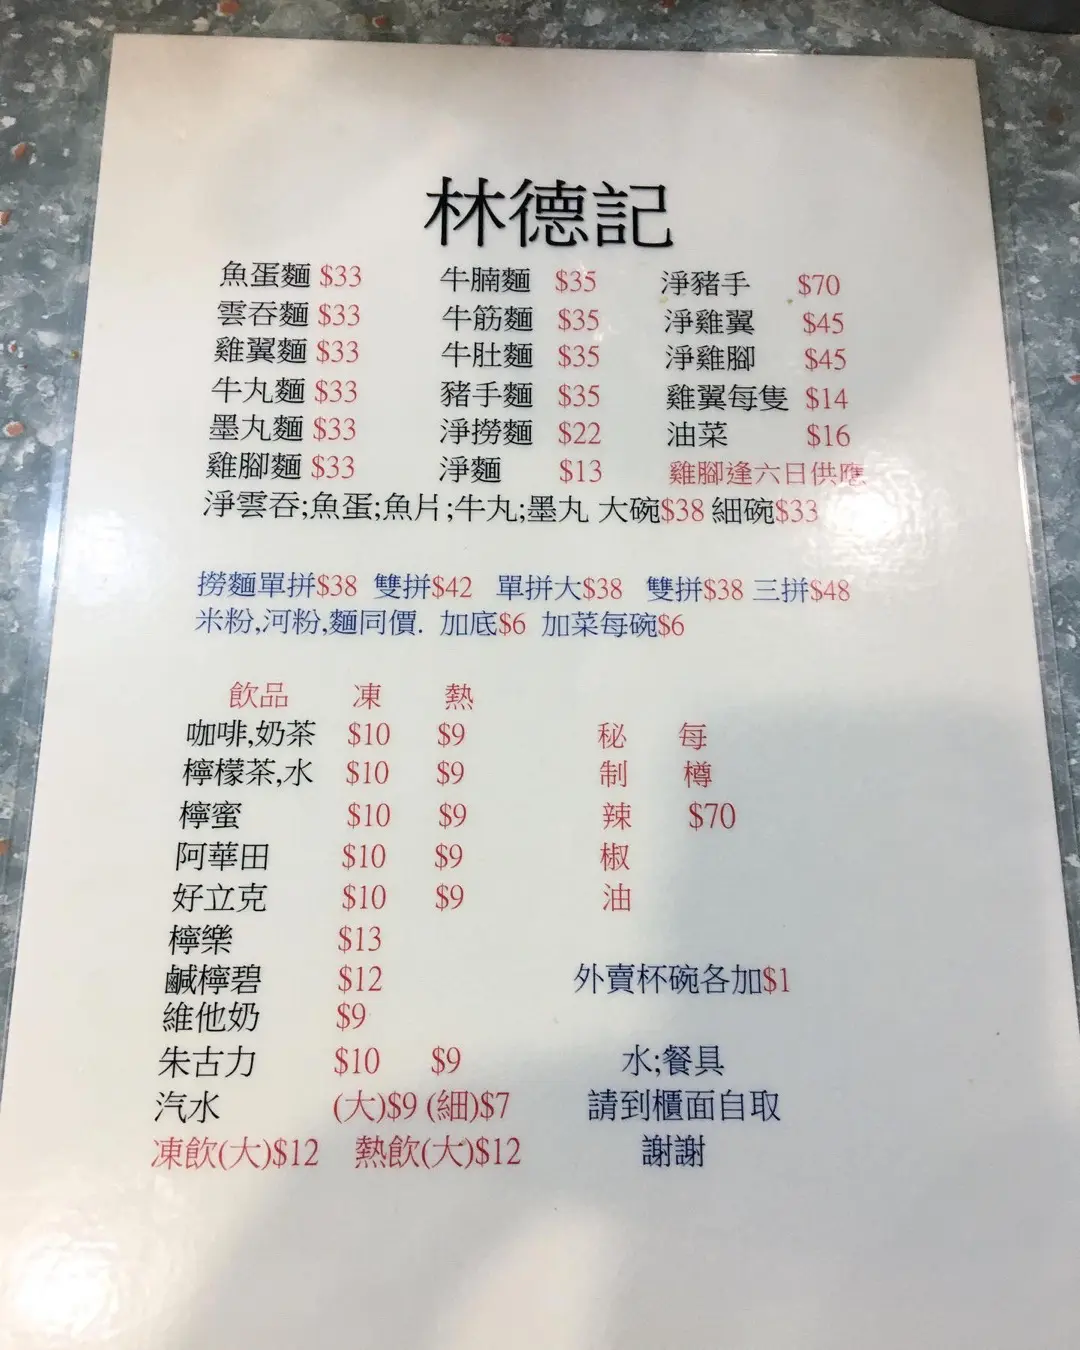 林德記
魚蛋麵 $33 牛腩麵 $35 淨豬手 $70
雲吞麵 $33 牛筋麵 $35 淨雞翼 $45
雞翼麵 $33 牛肚麵 $35 淨雞腳 $45
牛丸麵 $33 豬手麵 $35 雞翼每隻 $14
墨丸麵 $33 淨撈麵 $22 油菜 $16
雞腳麵 $33 淨麵 $13 雞腳逢六日供應
淨雲吞;魚蛋;魚片;牛丸;墨丸 大碗$38 細碗$33
撈麵單拼$38 雙拼$42 單拼大$38 雙拼$38 三拼$48
米粉,河粉,麵同價. 加底$6 加菜每碗$6
飲品 凍 熱
咖啡,奶茶 $10 $9
檸檬茶,水 $10 $9
檸蜜 $10 $9
阿華田 $10 $9
好立克 $10 $9
檸樂 $13
鹹檸碧 $12
維他奶 $9
朱古力 $10 $9
汽水 (大)$9 (細)$7
凍飲(大)$12 熱飲(大)$12
秘制辣椒油
每樽 $70
外賣杯碗各加$1
水;餐具
請到櫃面自取
謝謝